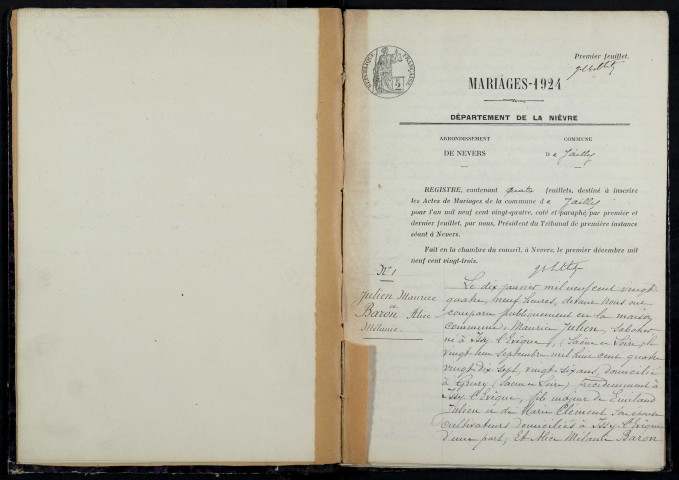 Premier feuillet.
RÉPUBLIQUE FRANÇAISE
MARIAGES-1924
DÉPARTEMENT DE LA NIÈVRE
ARRONDISSEMENT
DE NEVERS
COMMUNE
de Jailly
REGISTRE, contenant quatre feuillets, destiné à inscrire
les Actes de Mariages de la commune de Jailly
pour l'an mil neuf cent vingt-quatre, coté et paraphé, par premier et
dernier feuillet, par nous, Président du Tribunal de première instance
séant à Nevers.
Fait en la chambre du conseil, à Nevers, le premier décembre mil
neuf cent vingt-trois.
N° 1
Julien Maurice
et
Baron Alice
Mélanie
Le dix janvier mil neuf cent vingt
quatre, neuf heures, devant Nous ont
comparu publiquement en la maison
commune, Maurice Julien, sabotier
né à Issy l'Evêque, (Saône et Loire) le
vingt neuf septembre mil huit cent quatre
vingt dix sept, vingt six ans, domicilié
à Grury (Saône et Loire) précédemment à
Issy l'Evêque, fils majeur de Emiland
Julien et de Marie Clément son épouse
cultivateurs domiciliés à Issy l'Evêque
d'une part, Et Alice Mélanie Baron